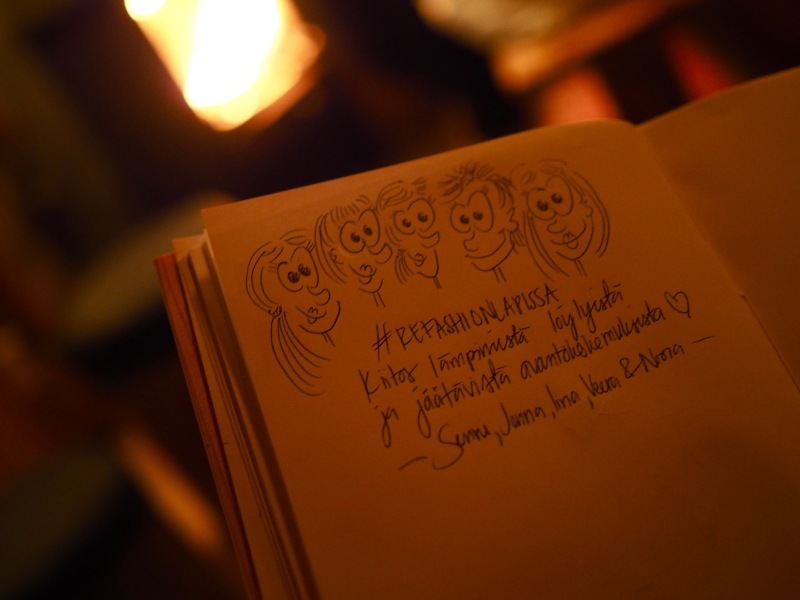 #REFASHIONLAPISSA
Kiitos lämpimistä löylyistä
ja jäätävistä avantokokemuksista ♡
— Sanni, Janna, Iina, Veera & Noora —